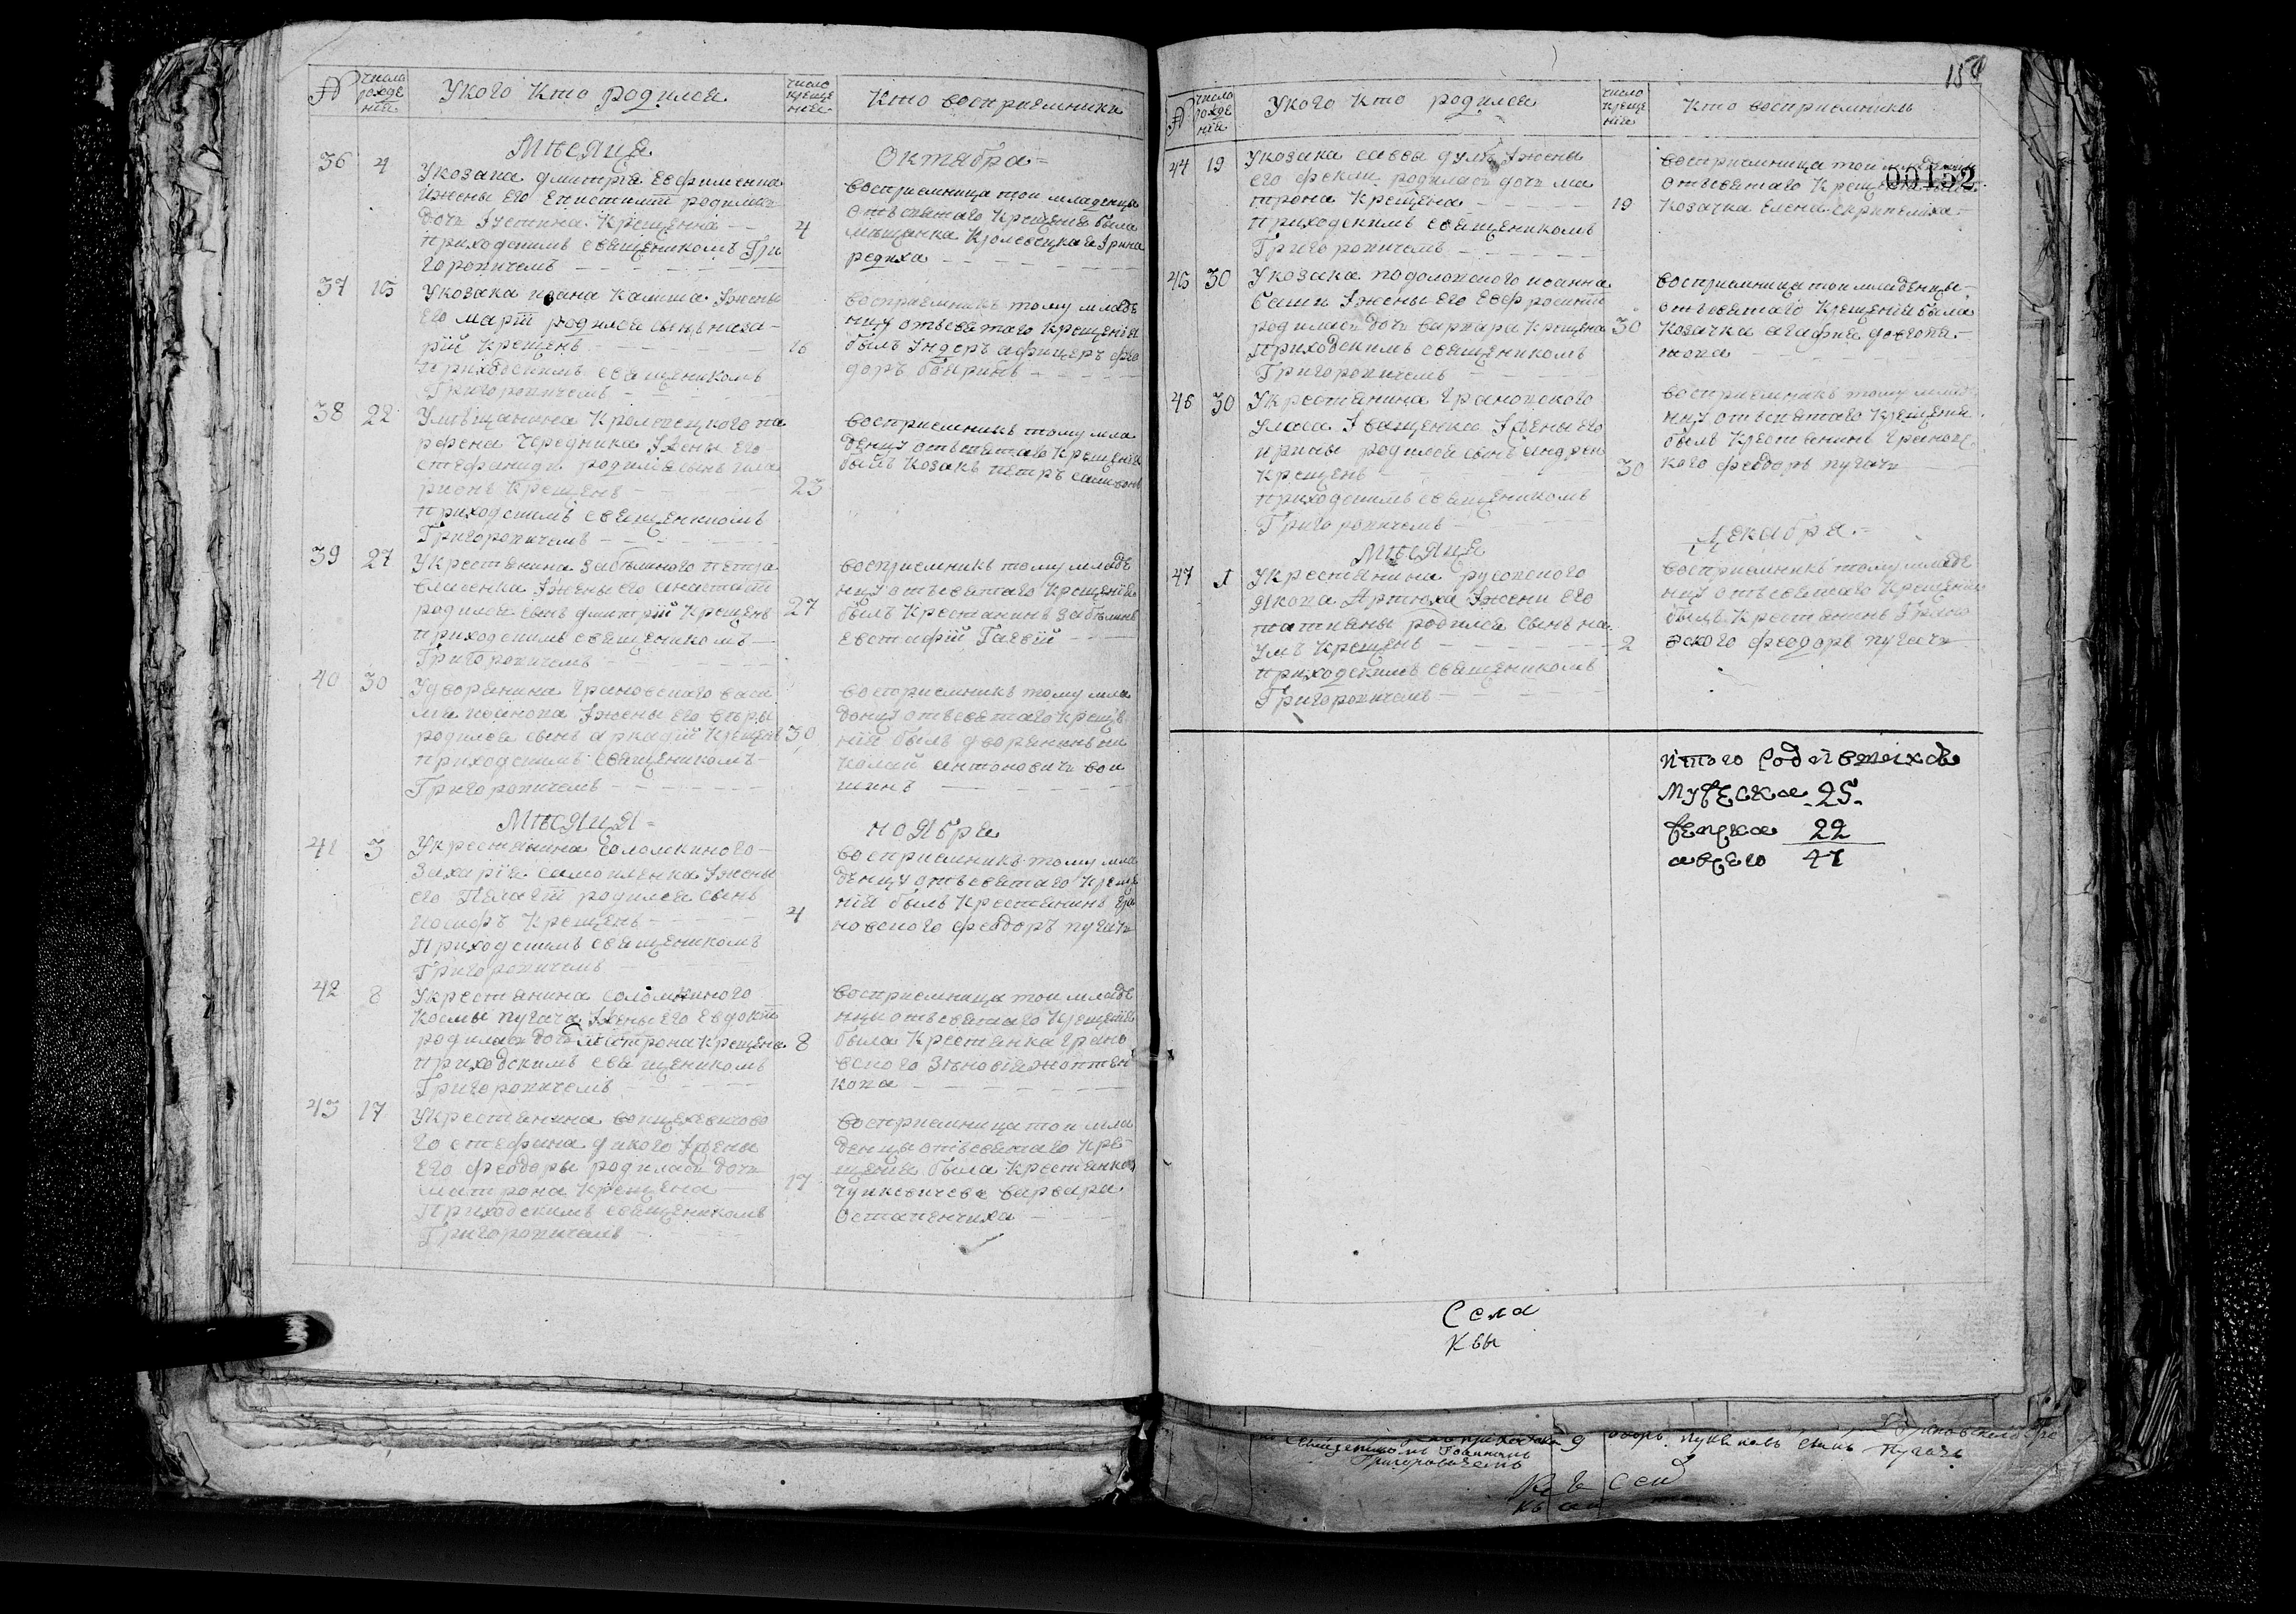 № число рожде нїя
Укого Кто родился
число креще нїя
Кто восприемники
Мѣсяца
Октября
36 4
Укозака дмитрїя Евфименка
Ижены его родилась
дочь Устина Крещенна
приходскимъ священикомъ Гри
горовичемъ
4
восприемница тои младенцы
отъ святаго Крещенїя была
мѣщанка Кролевецкая Ірина
редиха
37 15
Укозака иоана Ижены
его марѳи родился сынъ наза
рїй Крещенъ
приходскимъ священикомъ
Григоровичемъ
16
восприемникъ тому младе
нцу отъ святаго Крещенїя
былъ Ундеръ афицеръ фео
доръ бояринъ
38 22
Умѣщанина Кролевецкого па
рфена Чередника Ижены его
стефаниды родился сынъ ила
рионъ Крещенъ
приходскимъ священикомъ
Григоровичемъ
23
восприемникъ тому мла
денцу отъ святаго Крещенїя
былъ Козакъ петръ
39 27
Укрестянина Забѣлиного петра
власенка Ижены его анастасїи
родился сынъ дмитрїй Крещенъ
приходскимъ священикомъ
Григоровичемъ
27
восприемникъ тому младе
нцу отъ святаго Крещенїя
былъ Крестянинъ Забѣлинъ
Евстафїй Гаевїй
40 30
Удворянина Грановского васи
лїя иоанова Ижены его вѣры
родился сынъ аркадїй Крещенъ
приходскимъ священикомъ
Григоровичемъ
30
восприемникъ тому мла
денцу отъ святаго Креще
нїя былъ дворянинъ ни
колай антоновичъ вои
шинъ
Мѣсяца
ноября
41 3
Укрестянина Соломкиного
Захарїя самоиленка Ижены
его Пелагїи родился сынъ
иосифъ Крещенъ
Приходскимъ священикомъ
Григоровичемъ
4
восприемникъ тому мла
денцу отъ святаго Креще
нїя былъ Крестянинъ Гра
новского феодоръ пугачь
42 8
Укрестянина соломкиного
Космы пугача Ижены его Евдокїи
родилась дочь матрона Крещена
приходскимъ священикомъ
Григоровичемъ
8
восприемница тои младе
нцы отъ святаго Крещенїя
была Крестянка Грано
вского Зѣновїя
кова
43 17
Укрестянина
го стефана дикого Ижены
его феодоры родилась дочь
матрона Крещена
Приходскимъ священикомъ
Григоровичемъ
17
восприемница тои мла
денцы отъ святаго Кре
щенїя была Крестянка
варвара
Остапенчиха
№ число рожде нїя
Укого Кто родился
число креще нїя
Кто восприемники
00152
44 19
Укозака саввы Ижены
его феклы родилась дочь ма
трона Крещена
приходскимъ священикомъ
Григоровичемъ
19
восприемница тои
отъ святаго
Козачка Елена Скрипелиха
45 30
Укозака подолонского иоанна
Ижены его Евфросинїи
родилась дочь варвара Крещена
Приходскимъ священикомъ
Григоровичемъ
30
восприемница тои младенцы
отъ святаго Крещенїя была
Козачка агафия довгопо
лова
46 30
Укрестянина Грановского
власа Иващенка Ижены его
ирины родился сынъ андреи
Крещенъ
приходскимъ священикомъ
Григоровичемъ
30
восприемникъ тому младе
нцу отъ святаго Крещенїя
былъ Крестянинъ Гранов
кого феодоръ пугачь
Мѣсяца
Декабря
47 1
Укрестянина русовского
Якова Артюха Ижени его
татияны родился сынъ на
умъ Крещенъ
приходскимъ священикомъ
Григоровичемъ
2
восприемникъ тому младе
нцу отъ святаго Крещенїя
былъ Крестянинъ Грано
вского феодоръ пугачь
итого родившихся
мужеска 25
женска 22
авсего 47
Села
Квы
священикомъ Іоанномъ
Григоровичемъ
сынъ Пугачь